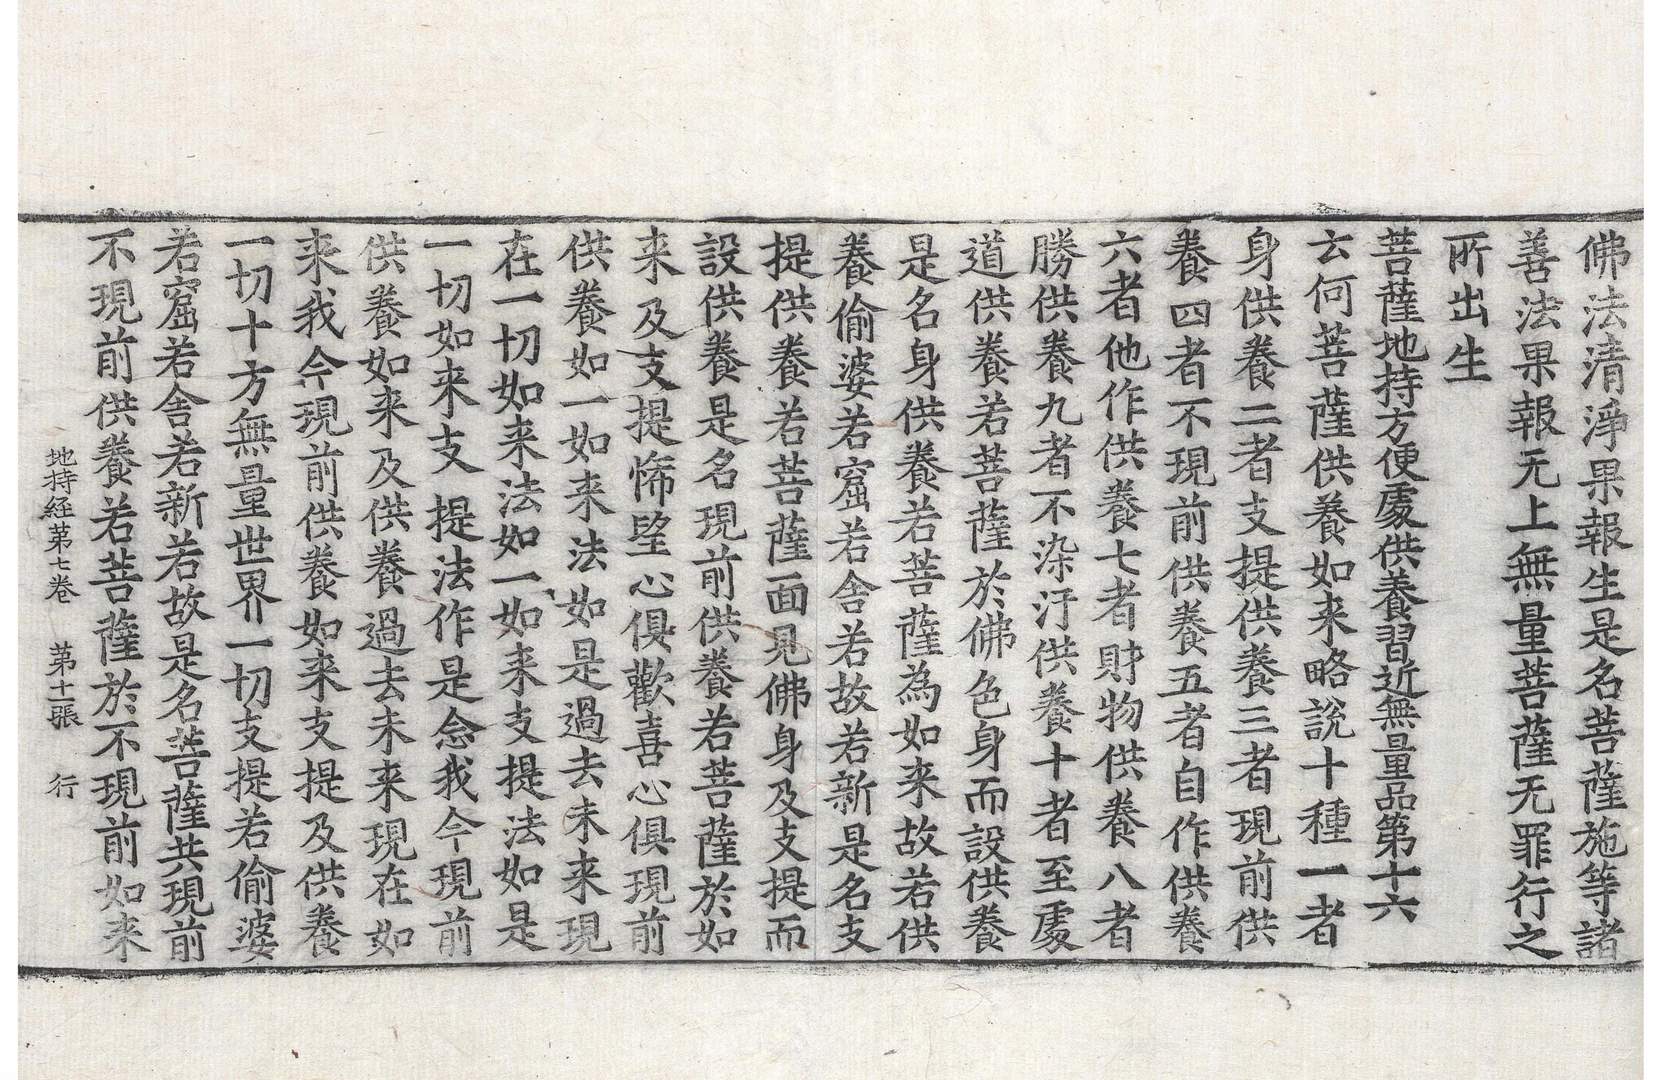 佛法清淨果報生是名菩薩施等諸
善法果報无上無量菩薩无罪行之
所出生
菩薩地持方便處供養習近無量品第十六
云何菩薩供養如来略說十種一者
身供養二者支提供養三者現前供
養四者不現前供養五者自作供養
六者他作供養七者財物供養八者
勝供養九者不染汙供養十者至處
道供養若菩薩於佛色身而設供養
是名身供養若菩薩為如来故若供
養偷婆若窟若舍若故若新是名支
提供養若菩薩面見佛身及支提而
設供養是名現前供養若菩薩於如
来及支提悕望心俱歡喜心俱現前
供養如一如来法如是過去未来現
在一切如来法如一如来支提法如是
一切如来支提法作是念我今現前
供養如来及供養過去未来現在如
来我今現前供養如来支提及供養
一切十方無量世界一切支提若偷婆
若窟若舍若新若故是名菩薩共現前
不現前供養若菩薩於不現前如来
地持経苐七卷 苐十一張 行